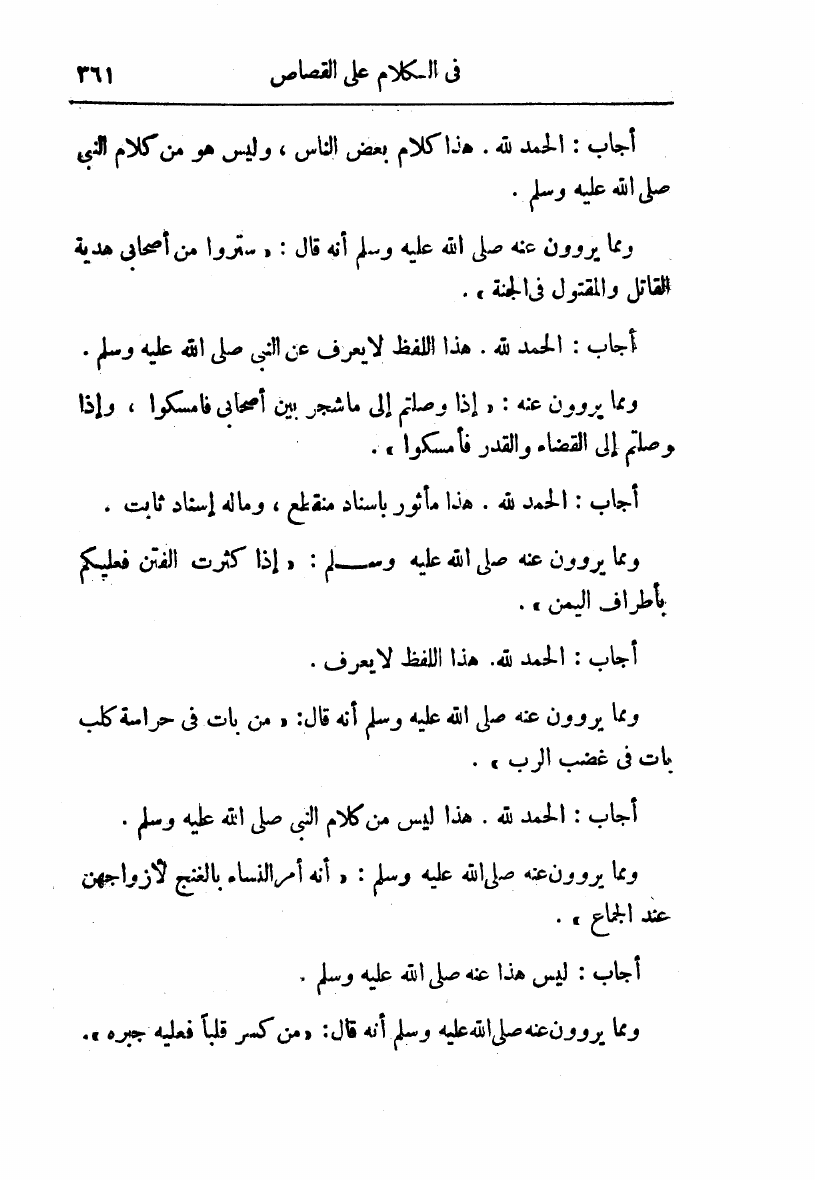 فى الكلام على القصاص ٣٦١
أجاب : الحمد لله . هذا كلام بعض الناس ، وليس هو من كلام النبي
صلى الله عليه وسلم .
ومما يروون عنه صلى الله عليه وسلم أنه قال : « ستروا من أصحابى هدية
القاتل والمقتول فى الجنة » .
أجاب : الحمد لله . هذا اللفظ لايعرف عن النبى صلى الله عليه وسلم .
ومما يروون عنه : « إذا وصلتم إلى ماشجر بين أصحابى فامسكوا ، وإذا
وصلتم إلى القضاء والقدر فأمسكوا » .
أجاب : الحمد لله . هذا مأثور باسناد منقطع ، وماله إسناد ثابت .
ومما يروون عنه صلى الله عليه وسلم : « إذا كثرت الفتن فعليكم
بأطراف اليمن » .
أجاب : الحمد لله. هذا اللفظ لايعرف .
ومما يروون عنه صلى الله عليه وسلم أنه قال: « من بات فى حراسة كلب
بات فى غضب الرب » .
أجاب : الحمد لله . هذا ليس من كلام النبى صلى الله عليه وسلم .
ومما يروون عنه صلى الله عليه وسلم : « أنه أمر النساء بالغنج لأزواجهن
عند الجماع » .
أجاب : ليس هذا عنه صلى الله عليه وسلم .
ومما يروون عنه صلى الله عليه وسلم أنه قال: « من كسر قلباً فعليه جبره ».